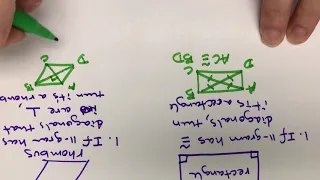 rectangle
1. If ||-gram has ≅
diagonals, then
it's a rectangle
A B
D C
AC ≅ BD
rhombus
1. If ||-gram has
diagonals that
are ⊥
then it's a rhomb
A B
D C